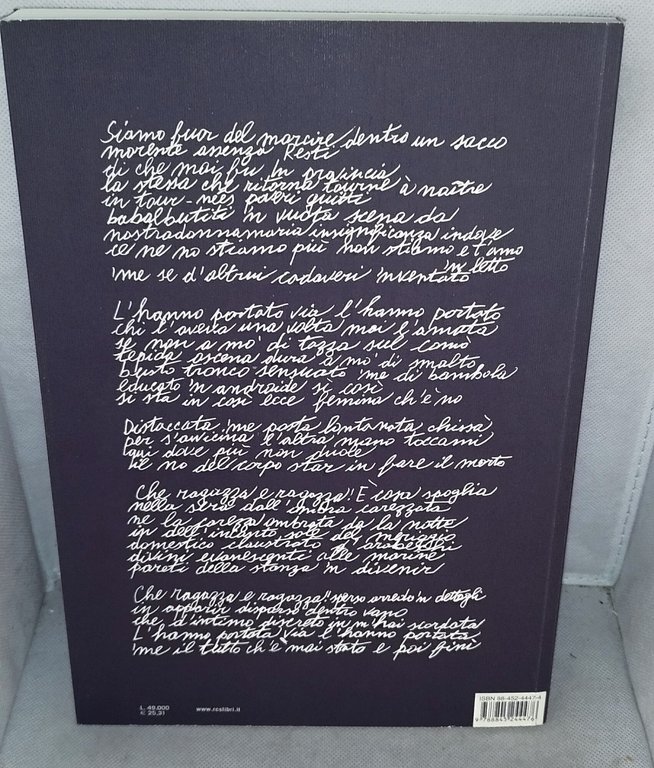 Siamo fuor del marcire dentro un sacco
morente assenza Resti
di che mai fu in provincia
la stessa che ritorna tourne à naître
in tour-nées guitti
babalbutiti 'n vuota scena da
nostradonnamaria insignificanza indove
ce ne no stiamo più non stiamo e t'amo
'me se d'altrui cadaveri 'nventato
'n letto
L'hanno portato via l'hanno portato
chi l'aveva una volta mai l'amata
se non a mo' di tazza sul comò
tepida oscena dura a mo' di smalto
busto tronco sensuato 'me di bambola
educato 'n androide si così
si sta in così ecce femina ch'è no
Distaccata 'me posta lontanata chissà
per s'avvicina l'altra mano toccami
qui dove più non duole
ne no del corpo star in fare il morto
Che ragazza e ragazza! È cosa spoglia
nella sera dall'ombra carezzata
ne la ombrata da la notte
in dell'incanto sole del meriggio
domestico claustrato d'arabeschi
divini evanescenti alle marine
pareti della stanza 'n divenir
Che ragazza e ragazza! sperso arredo 'n dettagli
in apparir disparso dentro vano
che d'intimo discreto in m'hai scordata
L'hanno portata via l'hanno portata
'me il tutto ch'è mai stato e poi finì
L. 49.000
€ 25,31
www.rcslibri.it
ISBN 88-452-4447-4
9 788845 244476